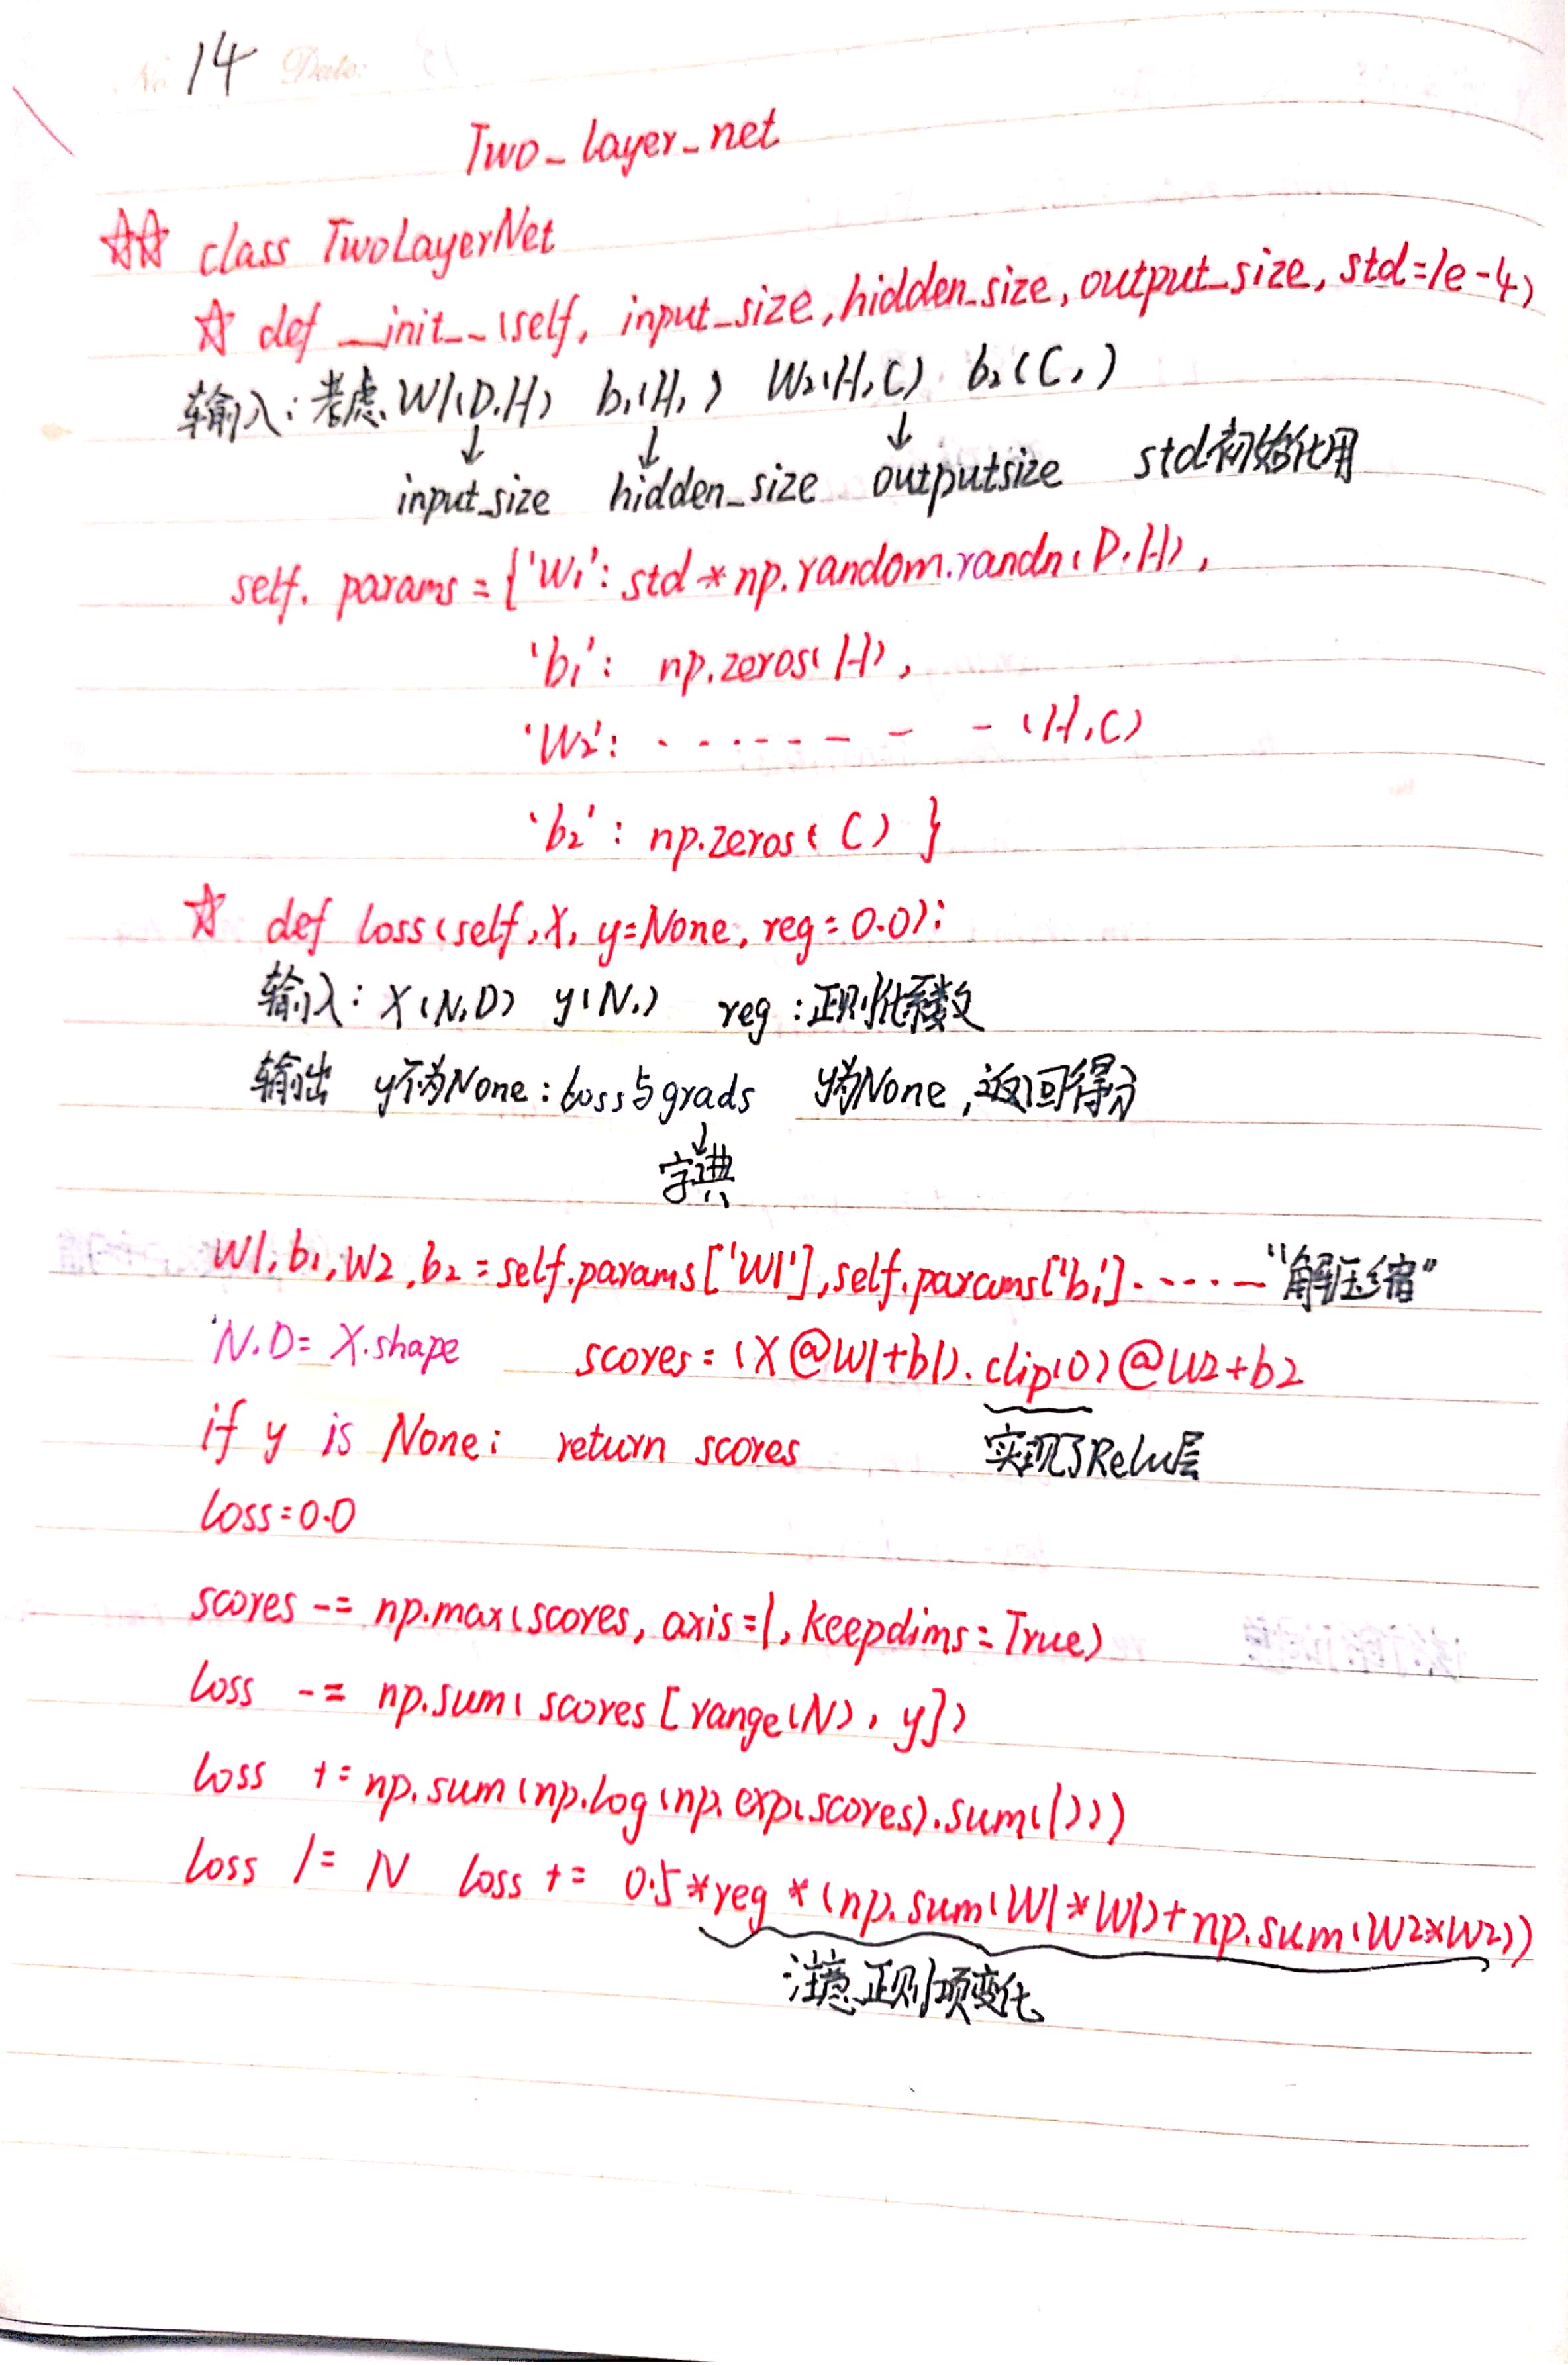 No 14 Date:
Two_layer_net
☆☆ class TwoLayerNet
☆ def __init__(self, input_size, hidden_size, output_size, std=1e-4)
输入: 考虑 W1(D,H) b1(H,) W2(H,C) b2(C,)
↓ ↓ ↓
input_size hidden_size outputsize std初始化用
self.params = {'W1': std * np.random.randn(D,H),
'b1': np.zeros(H),
'W2': - - - - - - - - - (H,C)
'b2': np.zeros(C) }
☆ def loss(self, X, y=None, reg=0.0):
输入: X(N,D) y(N,) reg:正则化系数
输出 y不为None: loss与grads y为None,返回得分
↓
字典
W1, b1, W2, b2 = self.params['W1'], self.params['b1']------"解压缩"
N.D= X.shape scores = (X@W1+b1).clip(0)@W2+b2
if y is None: return scores 实现了Relu层
loss=0.0
scores -= np.max(scores, axis=1, keepdims=True)
loss -= np.sum(scores[range(N), y])
loss += np.sum(np.log(np.exp(scores).sum(1)))
loss /= N loss += 0.5*reg*(np.sum(W1*W1)+np.sum(W2*W2))
注意正则项变化